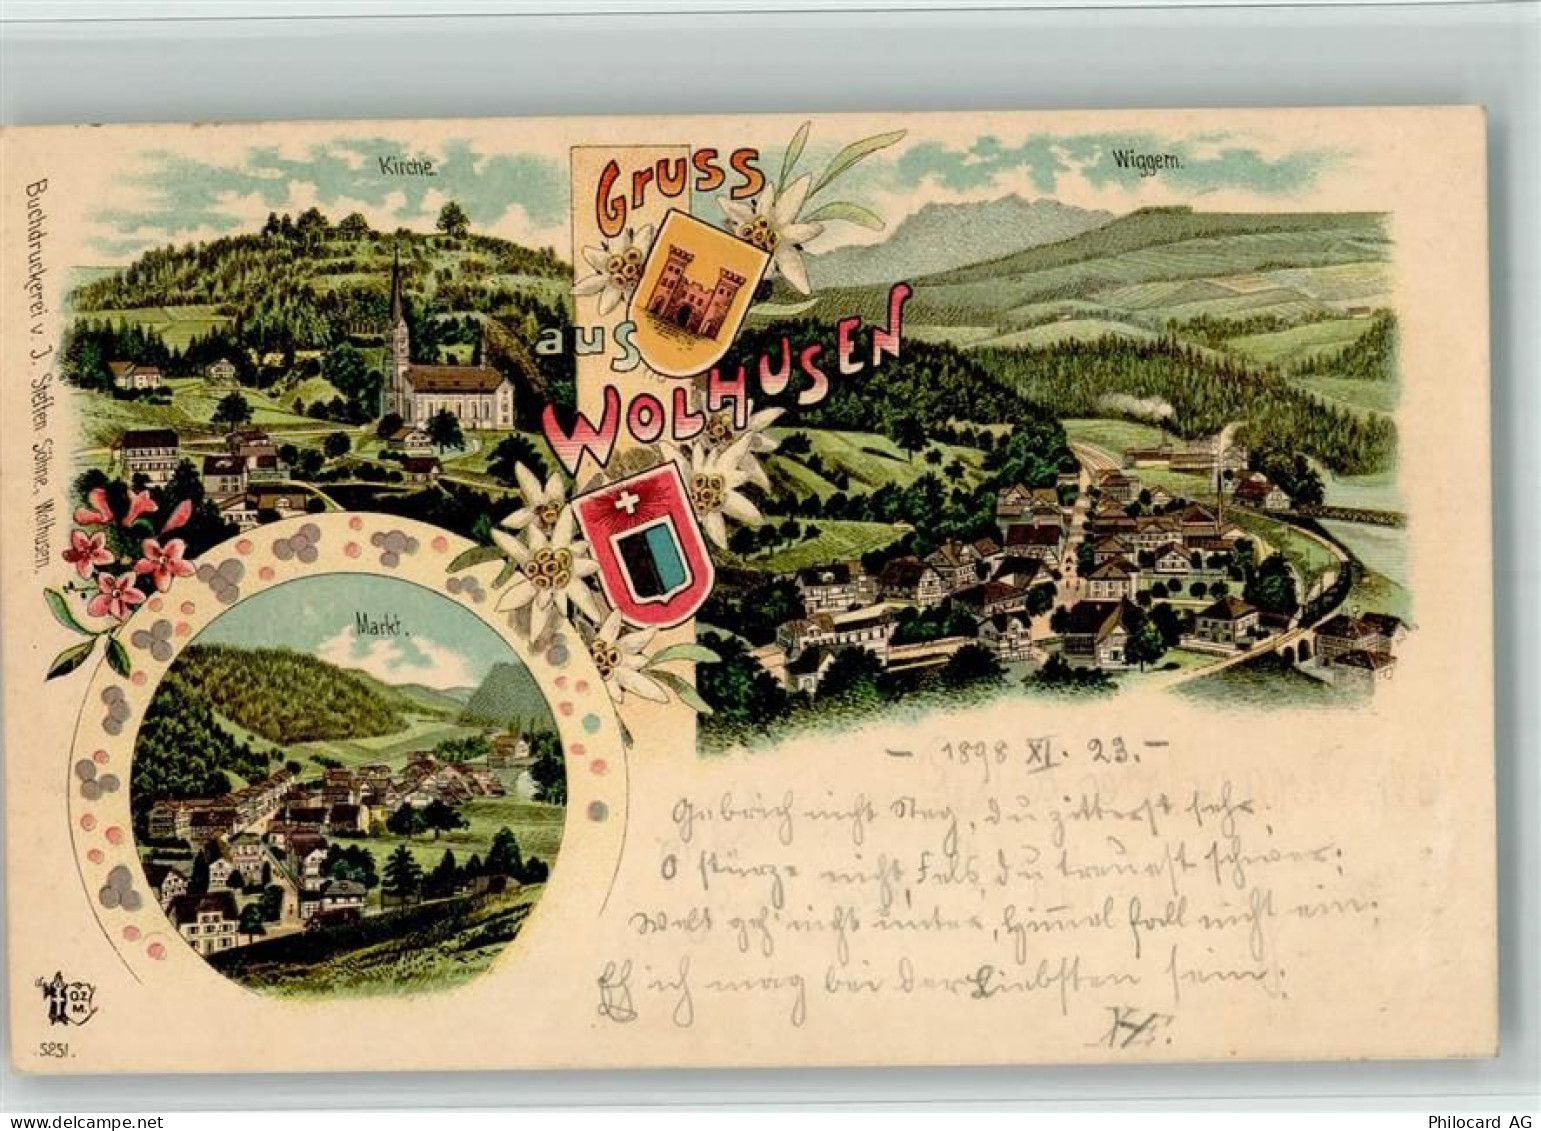 Kirche.
Gruss
aus
Wolhusen
Wiggern.
Markt.
Buchdruckerei v. J. Steffen Söhne, Wolhusen.
- 1898 XI. 23. -
Gebrich nicht Steg, du zitterst sehr,
O stürze nicht, Fels, du treuest schwer;
Welt geh' nicht unter, Himmel fall nicht ein;
Eh ich mag bei der Liebsten sein;
O.Z.
M.
5251.
delcampe.net
Philocard AG